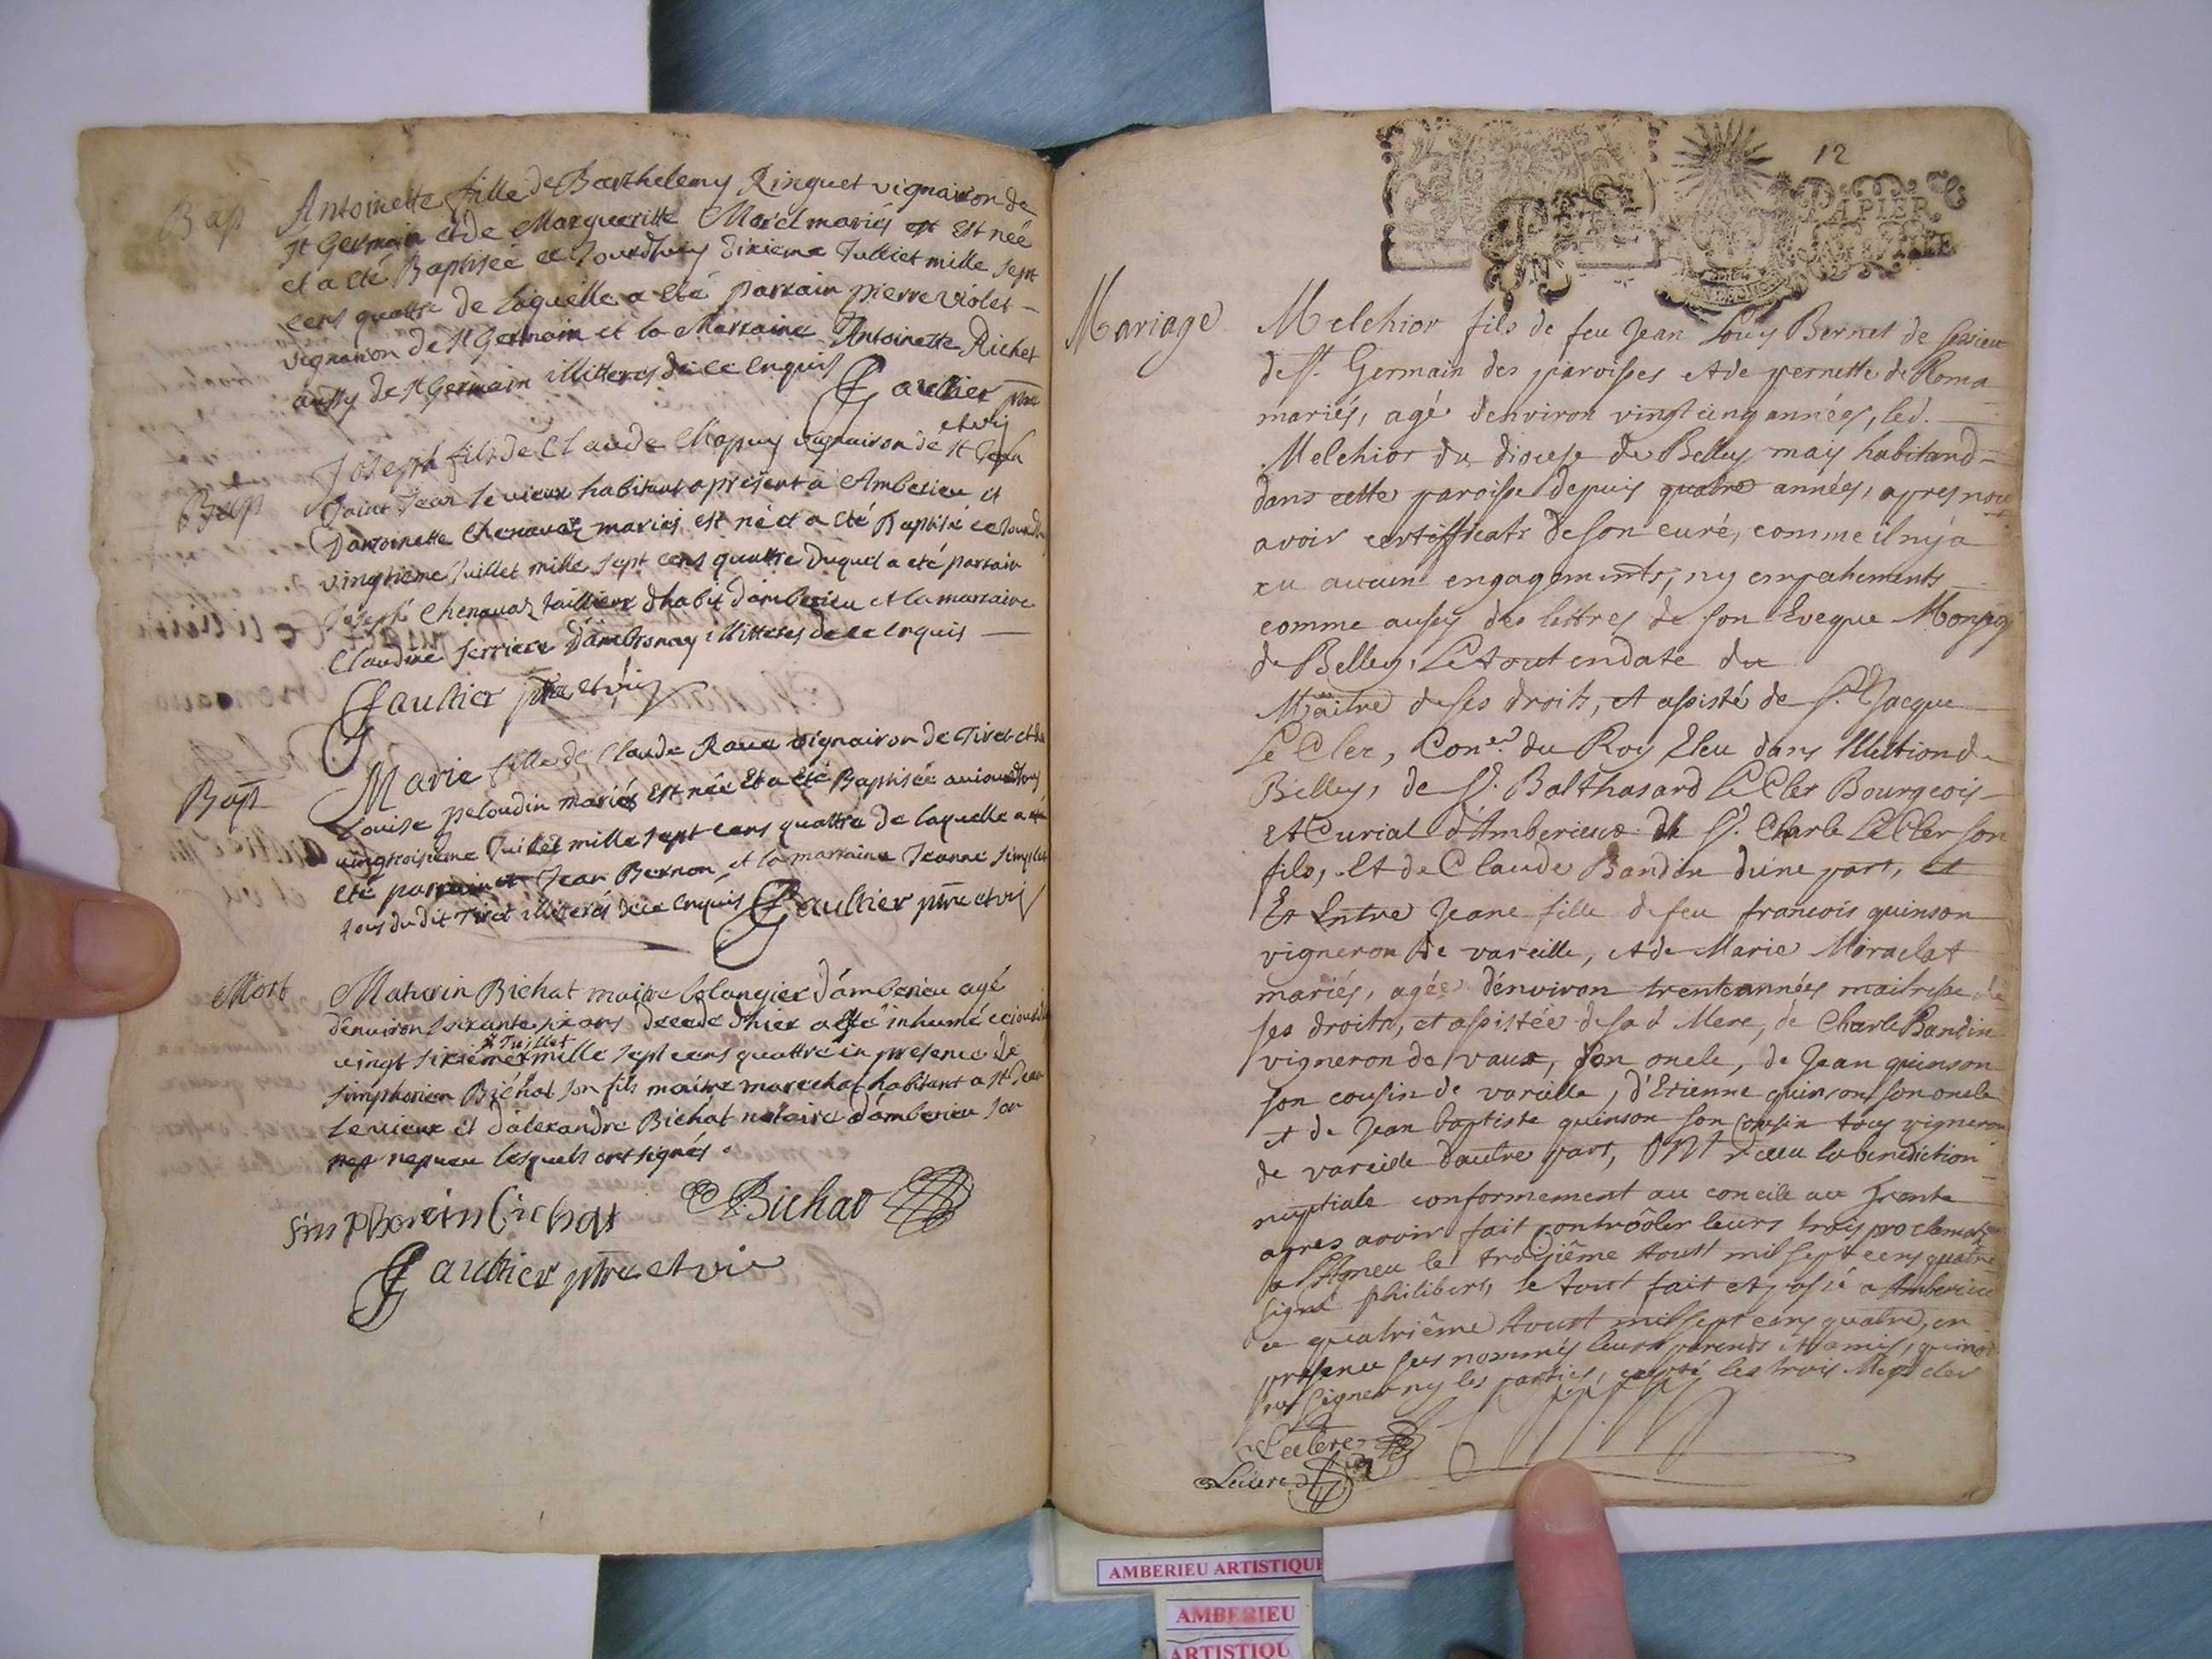 Bap
Antoinette fille de Barthelemy Ringuet vignairon de
st Germain et de Margueritte Morel mariés est née
et a eté Baptisée ce Jourdhuy dixieme Julliet mille sept
cens quattre de laquelle a eté parrain pierre violet
vignairon de st Germain et la Marraine Antoinette Richet
aussy de st Germain illitterés de ce enquis Gaultier ptre
et vic
Bap
Joseph fils de Claude Mapuy vignairon de st
Saint Jean le vieux habitant a présent a Amberieu et
Dantoinette Chenavaz mariés est né et a eté Baptisé ce Jourdh
vingtieme Juillet mille sept cens quattre duquel a eté parrain
Joseph Chenavaz tailleur dhabit d'amberieu et la marraine
Claudine ferriere d'ambronay illitterés de ce enquis
Gaultier ptre et vic
Bapt
Marie fille de Claude Ravu vignairon de Tiret et de
Louise peloudin mariés Est née Et a Eté Baptisée aujourdhuy
vingtroisieme Juillet mille sept cens quattre de laquelle a
eté parrain Jean Bernon et la marraine Jeanne
tous du dit Tiret illiterés de ce enquis Gaultier ptre et vic
Mort
Maturin Bichat maitre bolangier d'amberieu agé
d'environ soixante six ans decedé d'hier a été inhumé ce jourdh
Juillet
vingt sixieme mille sept cens quattre en presence de
simphorien Bichat son fils maitre marechal habitant a st Jean
le vieux et d'alexandre Bichat notaire d'amberieu son
nep nepveu lesquels ont signés
simphorein bichat Bichat
Gaultier ptre et vic
12
PAPIER
Mariage
Melchior fils de feu Jean Louy Bernet de
de st. Germain des paroisses et de pernette de Roma
mariés, agé d'environ vingt cinq années, led.
Melchior du diocese de Belley mais habitand
dans cette paroisse depuis quatre années, apres nous
avoir certifficats de son curé, comme il ny a
eu aucun engagements, ny empechements
comme aussy des lettres de son Eveque Monsg
de Belley, Le tout en date du
Maitre de ses droits, et assisté de sr. Jacque
Le Cler, Coner. du Roy Eleu dans lElection de
Belley, de Sr. Balthasard Le Cler Bourgeois
et Curial d'Amberieux de Sr. Charle Le Cler son
fils, et de Claude Bandin d'une part, et
Et Entre Jeane fille de feu francois quinson
vigneron de vareille, et de Marie Miraclat
mariés, agée d'environ trente années maitresse de
ses droits, et assistée de sa d Mere, de Charle Bandin
vigneron de vaux, son oncle, de Jean quinson
son cousin de vareille, d'Etienne quinson son oncle
et de Jean baptiste quinson son cousin tous vigneron
de vareille d'autre part, ONT receu la benediction
nuptiale conformement au concile de Trente
apres avoir fait contrôoler leurs trois proclamat
a Lagneu le troisiême Aoust mil sept cens quatre
signé philibert, le tout fait et passé a Amberieu
ce quatriême Aoust mil sept cens quatre, en
presence sus nommés leurs parents et amis, qui n'ont
sus signer ny les parties, excepté les trois Mrs cler
Leclerc
Leclerc
AMBERIEU ARTISTIQUE
AMBERIEU
ARTISTIQU